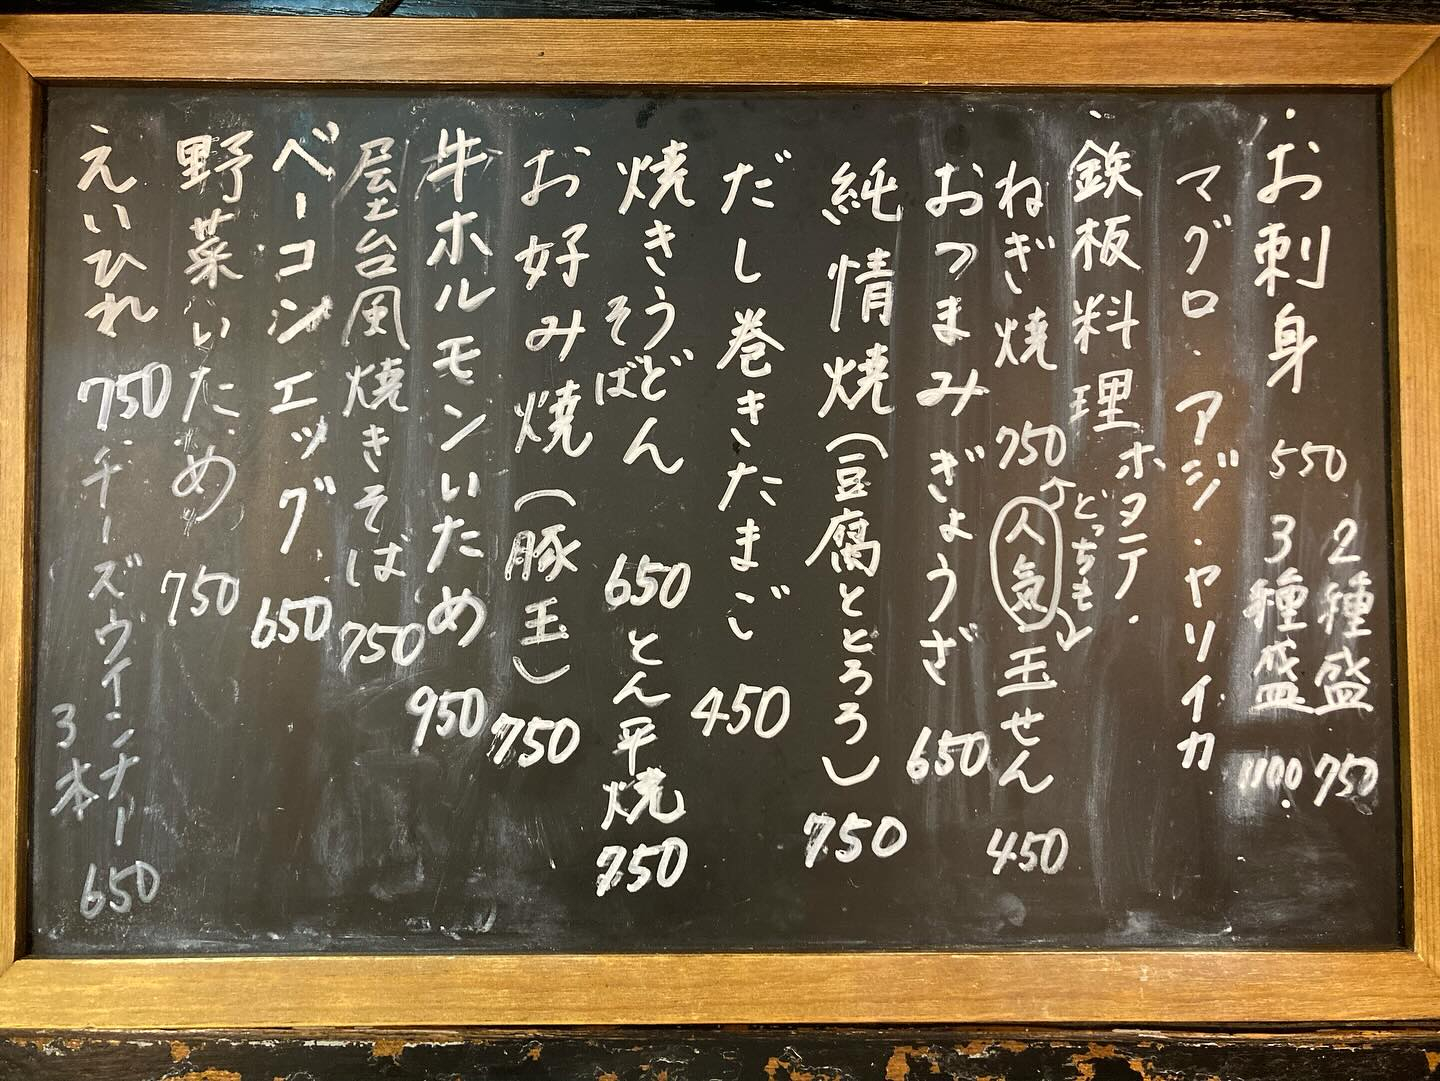 ・お刺身 550 2種盛 750
3種盛 1100
マグロ・アジ・ヤリイカ
ホタテ・
・鉄板料理
ねぎ焼 750 人気 玉せん 450
どっちも
おつまみぎょうざ 650
純情焼(豆腐ととろろ) 750
だし巻きたまご 450
焼きうどん 650 とん平焼 750
そば
お好み焼(豚玉) 750
牛ホルモンいため 950
屋台風焼きそば 750
ベーコンエッグ 650
野菜いため 750
えいひれ 750 チーズウインナー 650
3本